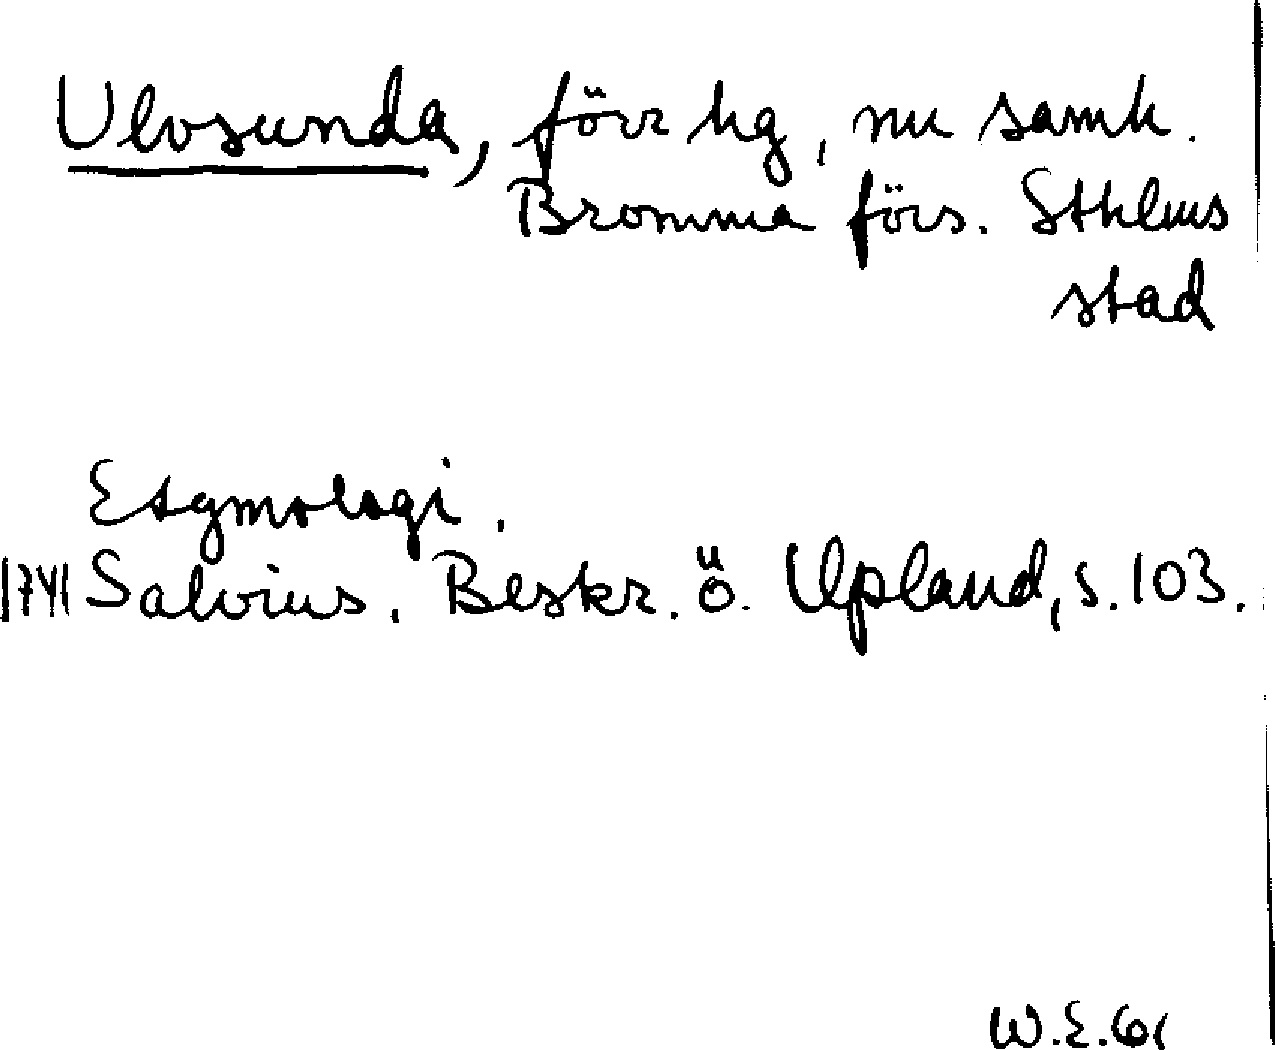 Ulvsunda, förr hg, nu samh.
Bromma förs. Sthlms
stad
Etymologi.
1741 Salvius. Beskr. ö. Upland, s. 103.
W.E. 61